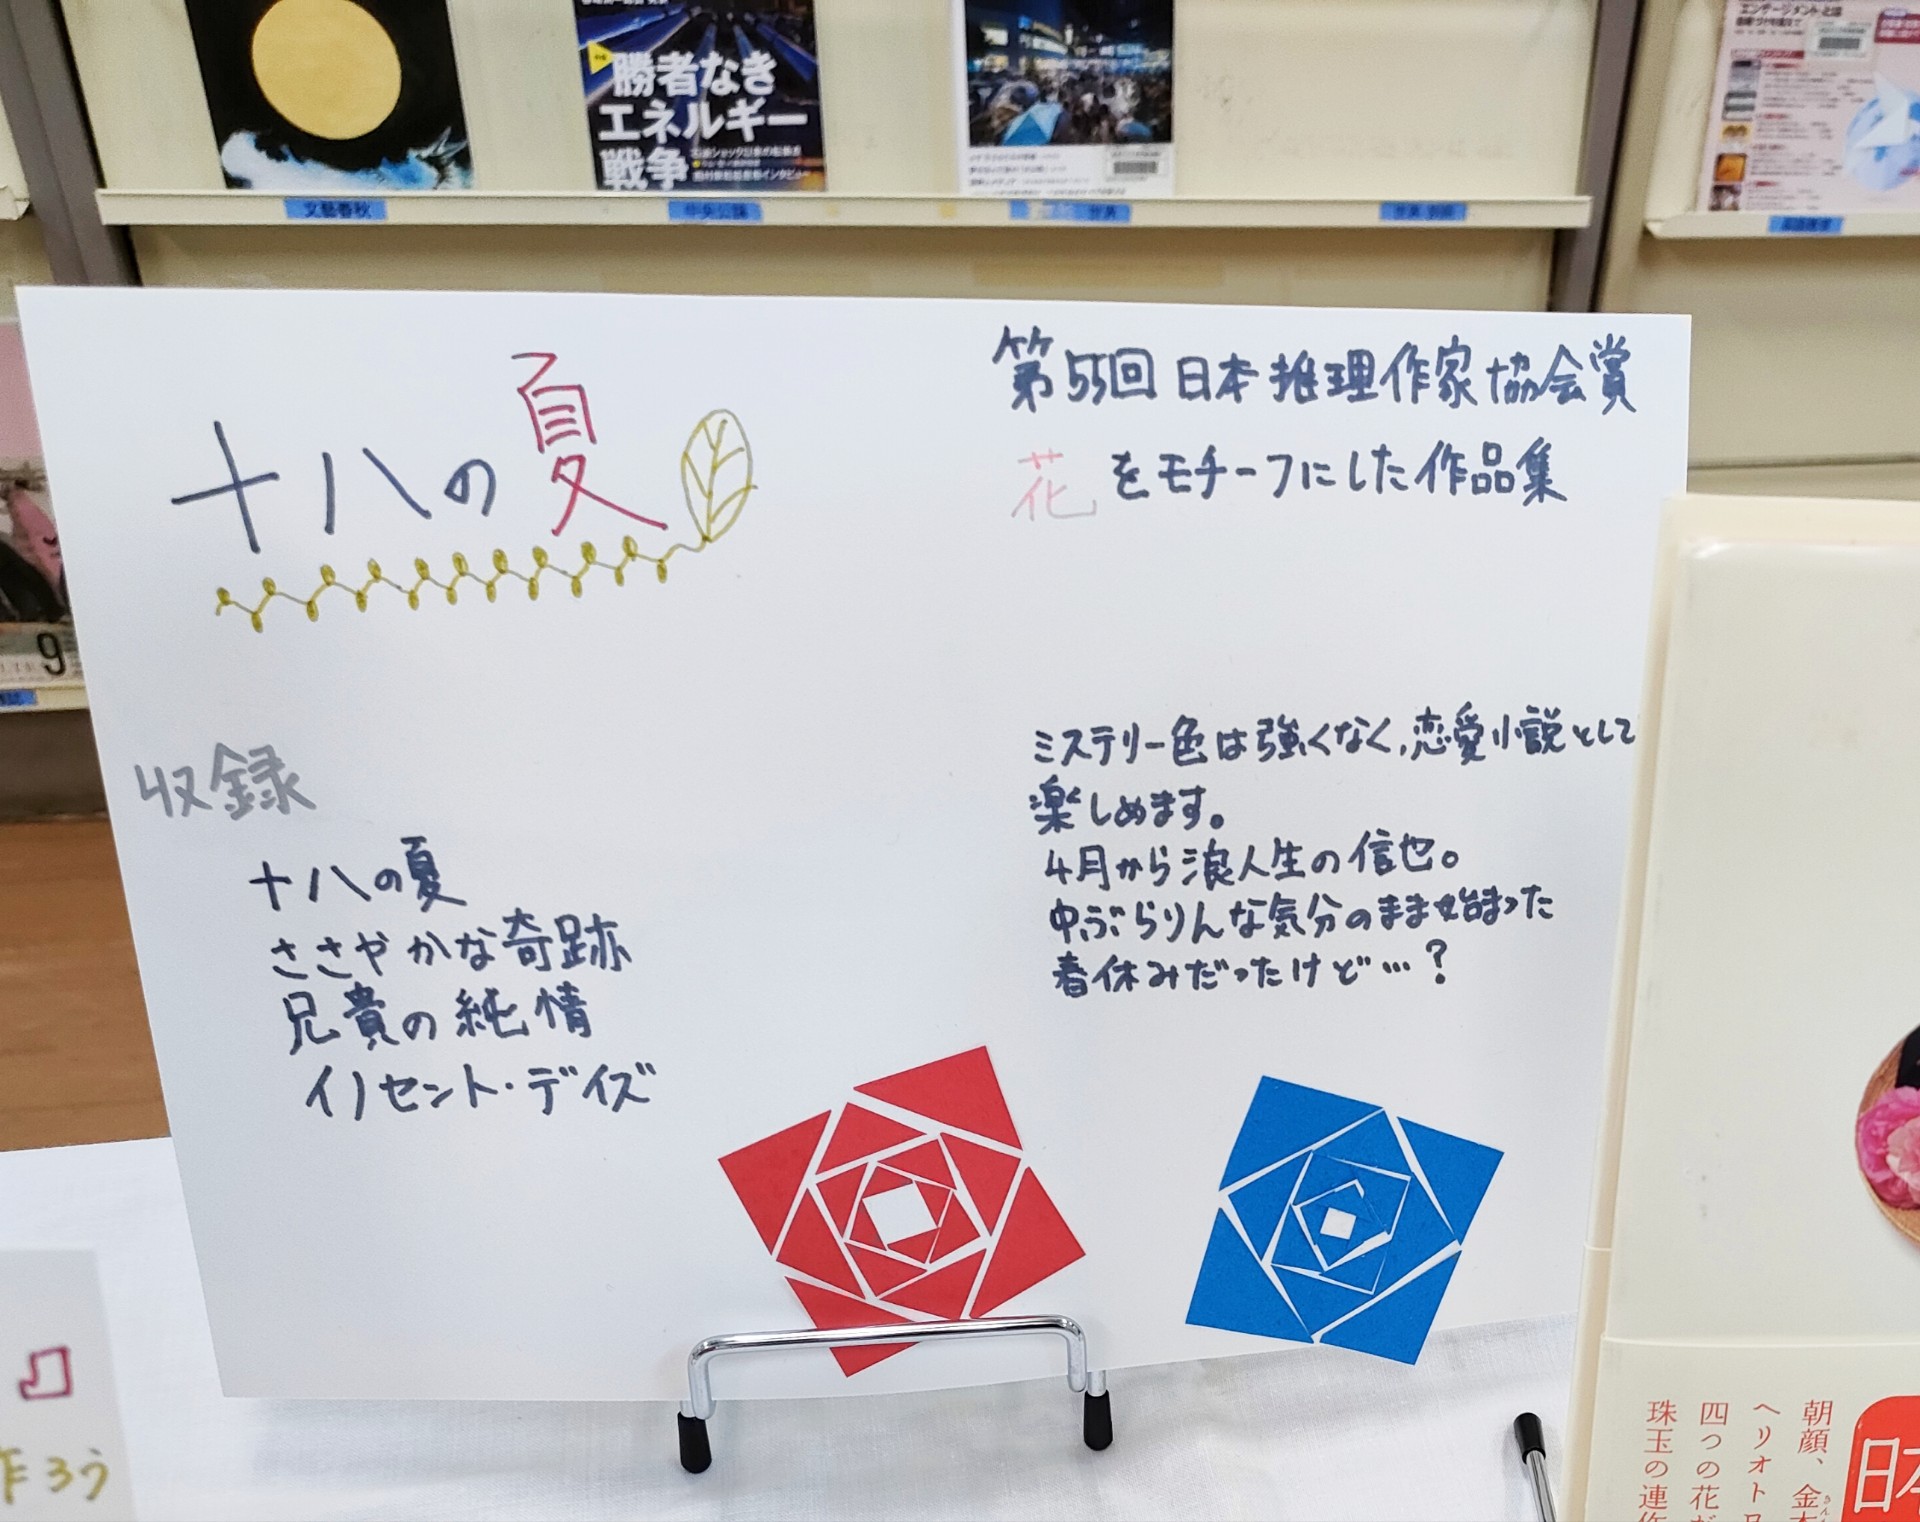 勝者なき
エネルギー
戦争
文藝春秋
中央公論
世界
9
十八の夏
第55回日本推理作家協会賞
花をモチーフにした作品集
収録
十八の夏
ささやかな奇跡
兄貴の純情
イノセント・デイズ
ミステリー色は強くなく,恋愛小説として
楽しめます。
4月から浪人生の信也。
中ぶらりんな気分のまま始まった
春休みだったけど…?
作ろう
朝顔、金木
ヘリオトロ
四つの花が
珠玉の連作
日本